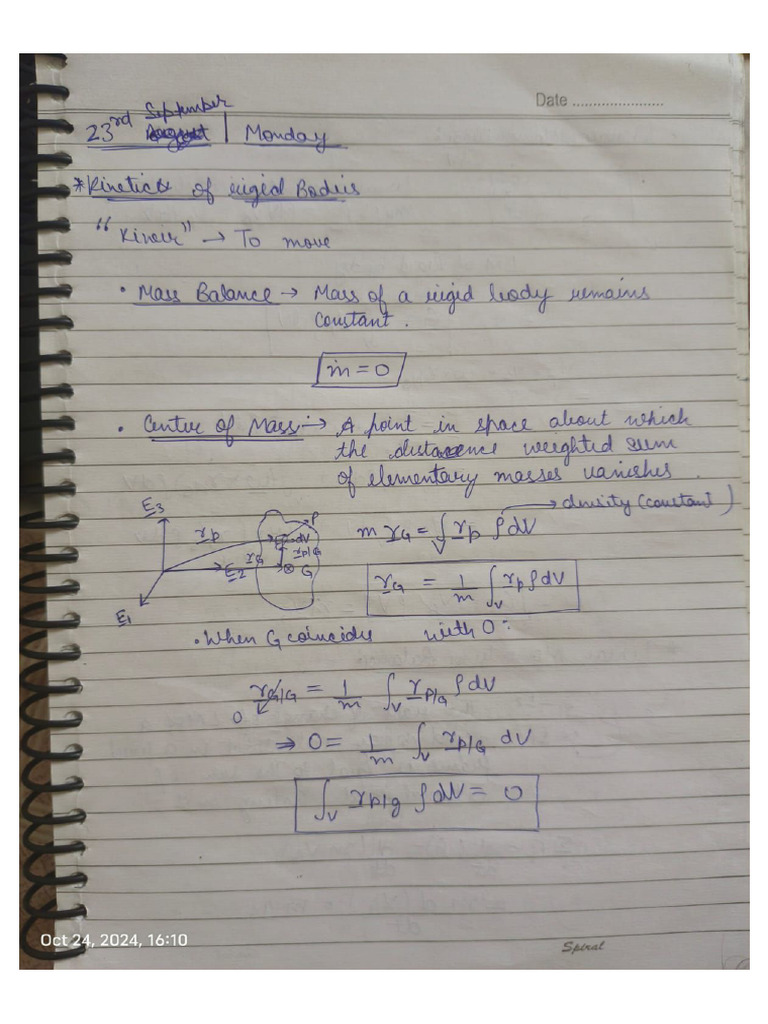 Date ......................
September
23rd | Monday
*Kinetics of rigid Bodies
"Kineir" → To move
• Mass Balance → Mass of a rigid body remains
constant.
ṁ = 0
• Center of Mass → A point in space about which
the distance weighted sum
of elementary masses vanishes.
→ density (constant)
E3
r_p
P
dV
r_G
r_P/G
E2
G
E1
m r_G = ∫_V r_p ρ dV
r_G = 1/m ∫_V r_p ρ dV
• When G coincides with O:
0 r_G/G = 1/m ∫_V r_P/G ρ dV
⇒ 0 = 1/m ∫_V r_P/G dV
∫_V r_P/g ρ dV = 0
Oct 24, 2024, 16:10
Spiral